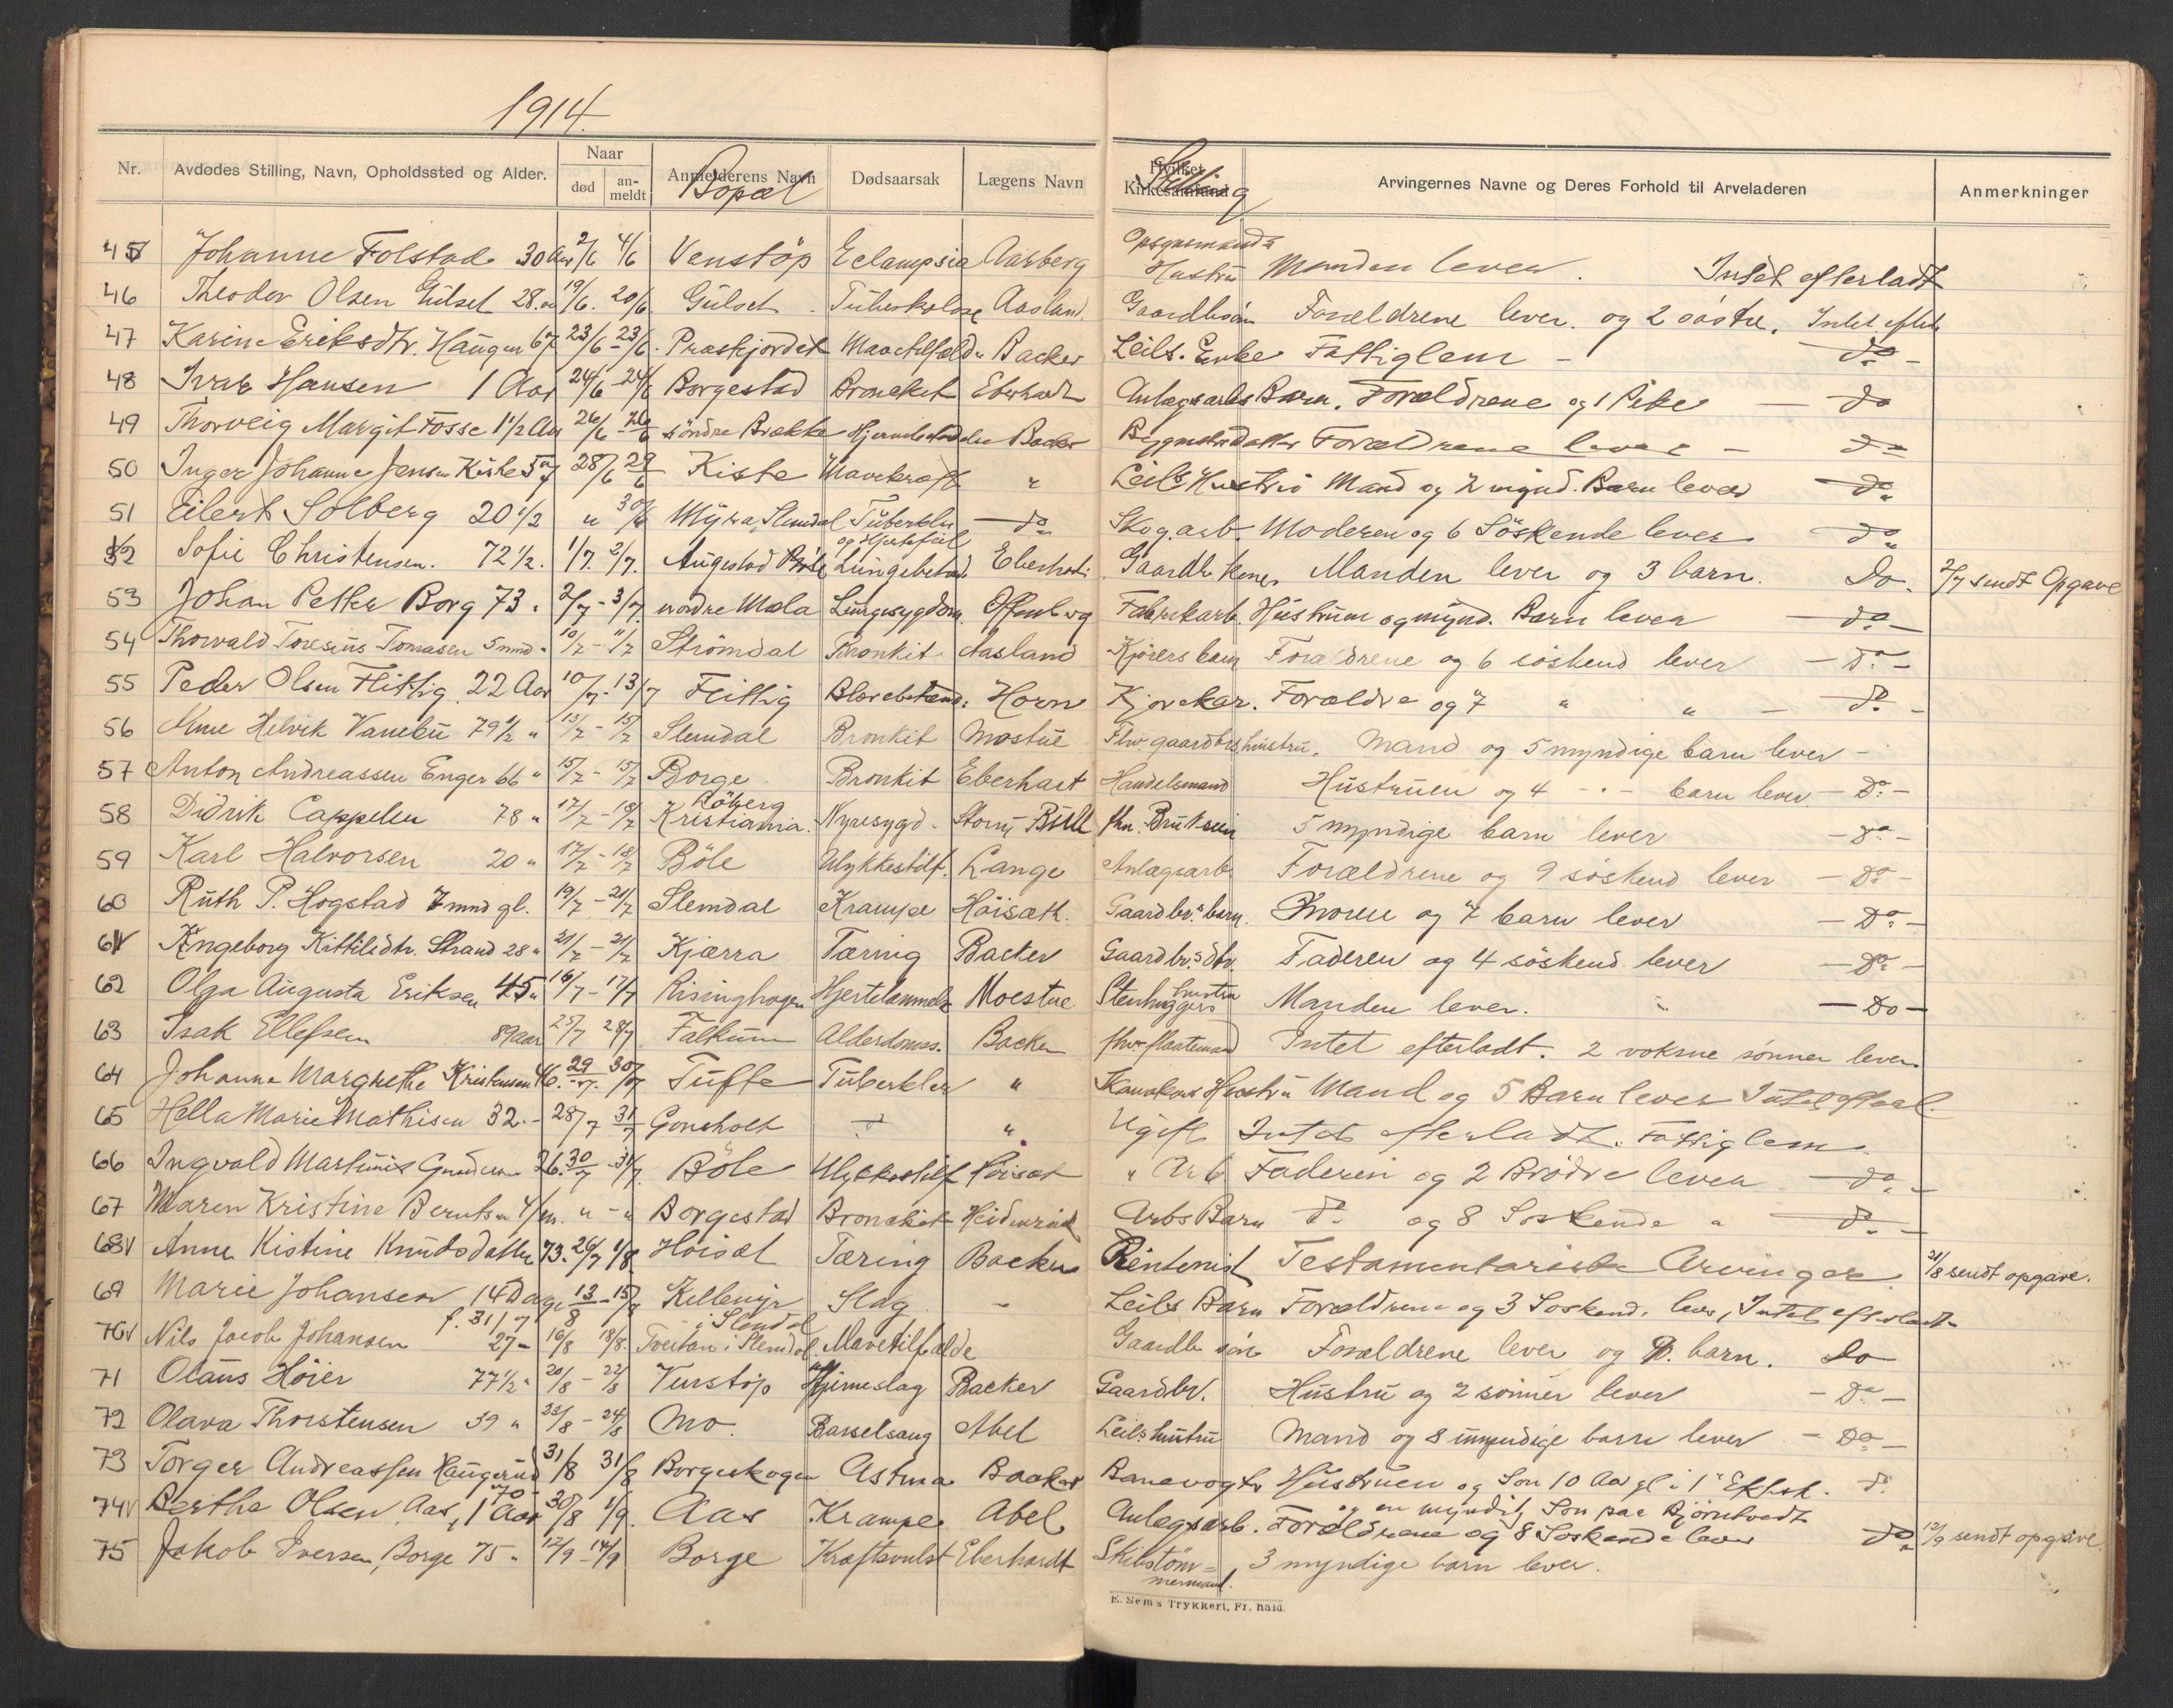 1914.
Nr. Avdødes Stilling, Navn, Opholdssted og Alder. Naar død an-meldt Anmelderens Navn Bopæl Dødsaarsak Lægens Navn Hvilket Kirkesamfund Stilling Arvingernes Navne og Deres Forhold til Arveladeren Anmerkninger
45 Johanne Folstad 30 Aar 2/6 4/6 Venstöp Eclampsia Aarberg Opsynsmands Hustru Manden lever. Intet efterladt
46 Theodor Olsen Gulset 28 19/6. 20/6 Gulset Tuberkolose Aasland. Gaardb.sön Forældrene lever. og 2 söstre. Intet efterl.
47 Karine Eriksdtr. Haugen 67 23/6 - 23/6. Præstjordet Mavetilfælde Backer Leils. Enke Fattiglem - do -
48 Ivar Hansen 1 Aar 24/6 - 24/6 Borgestad Bronckit Eberhardt Anlægsarbs Barn. Forældrene og 1 Pike - do
49 Thorveig Margit Fosse 1 1/2 Aar 26/6 - 26/6 söndre Brække Backer Forældrene lever - do
50 Inger Johanne Jensen Kiste 57 28/6 29/6 Kiste Mavekræft " Leils Hustru Mand og 2 mynd. Barn lever do
51 Eilert Solberg 20 1/2 " 30/6 Myra, Slemdal Tuberkler og Hjertefeil do Skog.arb. Moderen og 6 Söskende lever do
52 Sofie Christensen. 72 1/2. 1/7. 2/7. Augestad Böle Lungebetæd. Eberhadt Gaardb. Kone. Manden lever og 3 barn. Do. 2/7 sendt Opgave
53 Johan Petter Borg 73 " 2/7 - 3/7. nordre Mæla Lungesygdom. Offenberg Fabrikarb. Hustruen og mynd. Barn lever - do -
54 Thorvald Toresius Tomasen 5 mnd " 10/7 - 11/7 Strömdal Bronkit Aasland Kjörers barn Forældrene og 6 söskend lever - Do -
55 Peder Olsen Flittig. 22 Aar 10/7 - 13/7 Flittig Blærebetænd. Horn Kjörekar. Forældre og 7 " " - do -
56 Anne Helvik Vanebu 79 1/2 " 13/7 - 15/7 Slemdal Bronkit Mostue Fhv. gaardbrs hustru. Mand og 5 myndige barn lever -
57 Anton Andreassen Enger 66 " 15/7 - 15/7 Borge Bronkit Eberhart Handelsmand Hustruen og 4 - " - barn lever - Do -
58 Didrik Cappelen 78 " 17/7 - 18/7 Kristiania. Nyresygd. Storm Bull fhv. Brukseier 5 myndige barn lever - Do -
59 Karl Halvorsen 20 " 17/7 - 18/7 Böle Ulykkestilf. Lange Anlægsarb Forældrene og 9 söskend lever - Do -
60 Ruth P. Hogstad 7 mnd gl. 19/7 - 21/7 Slemdal Krampe Höisæth. Gaardbr.s barn. Moren og 7 barn lever - Do -
61V Ingeborg Kittilsdtr. Strand 28 " 21/7 - 21/7 Kjærra Tæring Backer Gaardbr.s dtr. Faderen og 4 söskend lever - Do -
62 Olga Augusta Eriksen 45 " 16/7 - 17/7 Risinghagen Hjertelammelse Moestue Stenhuggers hustru Manden lever. " - Do -
63 Isak Ellefsen 89 aar 25/7 28/7 Falkum Alderdomss. Backer fhv. flaatemand Intet efterladt. 2 voksne sönner lever.
64 Johanne Margrethe Kristensen 46. 29/7. 30/7 Tufte Tuberkler " Hustru Mand og 5 Barn lever Intet efterl.
65 Hella Marie Mathisen 32. - 28/7 31/7 Gonsholt " Ugift Intet efterladt. Fattiglem.
66 Ingvald Martinius Gundersen 26. 30/7 31/7. Böle Ulykkestilf Höisæt " Arb Faderen og 2 Brödre lever - do -
67 Maren Kristine Berntsen 4/m. " - " Borgestad Bronckit Heidenreich Arbs Barn do og 8 Söskende " - do -
68V Anne Kistine Knudsdatter 73. 26/7 1/8 Höisæt Tæring Backer Rentenist Testamentariske Arvinger. 21/8 sendt opgave.
69 Marie Johansen 14 Dage f. 31/7 13/8 - 15/8 Kellemyr i Slemdal Slag - Leils Barn Forældrene og 3 Söskend. lever, Intet efterladt -
70V Nils Jacob Johansen 27 - 16/8 18/8. Tveitan i Slemdal. Mavetilfælde Gaardb. sön Forældrene lever og barn. Do
71 Olaus Höier 77 1/2 " 20/8 - 22/8 Venstöp Hjerneslag Backer Gaardbr. Hustru og 2 sönner lever - Do -
72 Olava Thorstensen 39 " 23/8 - 24/8 Mo. Barselseng Abel Leils. hustru Mand og 8 umyndige barn lever - Do -
73 Torger Andreassen Haugerud 70 - 31/8 31/8 Borgeskogen Astma Backer Banevogter Hustruen og Sön 10 Aar gl. i 1' Ektsk. do
og en myndig Sön paa Bjørntvedt
74V Berthe Olsen Aas, 1 Aar 30/8 1/9. Aas Krampe Abel Anlegsarb. Forældrene og 8 Söskende lever do 12/9 sendt opgave.
75 Jakob Iversen, Borge 75 " 12/9 - 14/9 Borge Kræftsvulst Eberhardt Skibstöm=mermand. 3 myndige barn lever.
E. Sem's Trykkeri, Fr. hald.